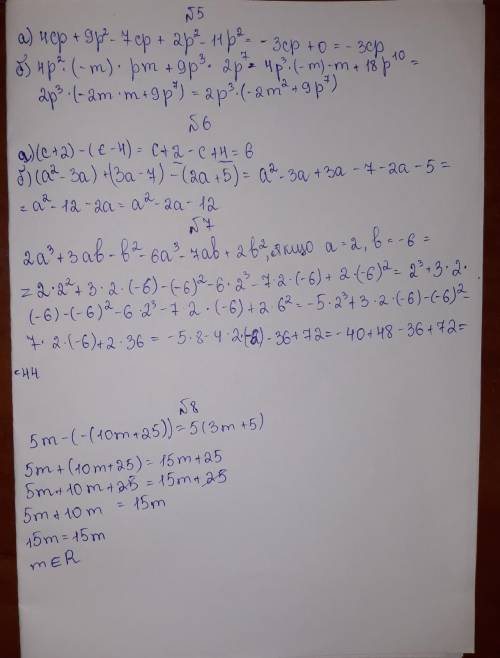 №5
а) 4cp + 9p² - 7cp + 2p² - 11p² = - 3cp + 0 = - 3cp
б) 4p² · (-m) · pm + 9p³ · 2p⁷ = 4p³ · (-m) · m + 18p¹⁰ =
2p³ · (-2m · m + 9p⁷) = 2p³ · (-2m² + 9p⁷)
№6
а) (c+2) - (c-4) = c + 2 - c + 4 = 6
б) (a² - 3a) + (3a - 7) - (2a + 5) = a² - 3a + 3a - 7 - 2a - 5 =
= a² - 12 - 2a = a² - 2a - 12
№7
2a³ + 3ab - b² - 6a³ - 7ab + 2b², якщо a = 2, b = -6 =
= 2 · 2² + 3 · 2 · (-6) - (-6)² - 6 · 2³ - 7 · 2 · (-6) + 2 · (-6)² = 2³ + 3 · 2 ·
(-6) - (-6)² - 6 · 2³ - 7 · 2 · (-6) + 2 6² = -5 · 2³ + 3 · 2 · (-6) - (-6)² -
7 · 2 · (-6) + 2 · 36 = -5 · 8 - 4 · 2 - 36 + 72 = -40 + 48 - 36 + 72 =
= 44
№8
5m - (-(10m + 25)) = 5(3m + 5)
5m + (10m + 25) = 15m + 25
5m + 10m + 25 = 15m + 25
5m + 10m = 15m
15m = 15m
m ∈ R